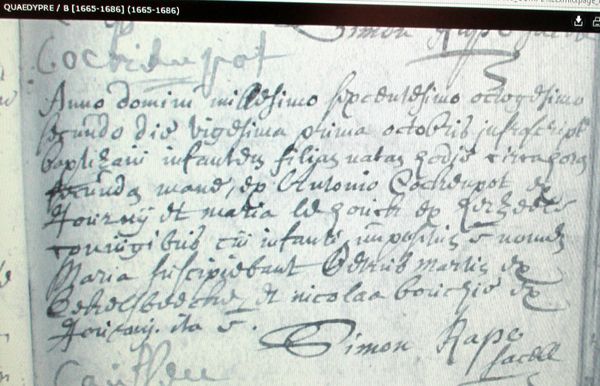 QUAEDYPRE / B [1665-1686] (1665-1686)
Simon Rape
Cockenpot
Anno domini millesimo sexcentesimo octogesimo
secundo die vigesima prima octobris infrascript
baptizavi infantem filiam natam hodie circa horam
secundam mane, ex Antonio Cockenpot ex
et maria ex
coniugibus cui infanti impositus e nomen
Maria susciperunt martin ex
et nicolaa ex
ita e.
Simon Rape
sacell